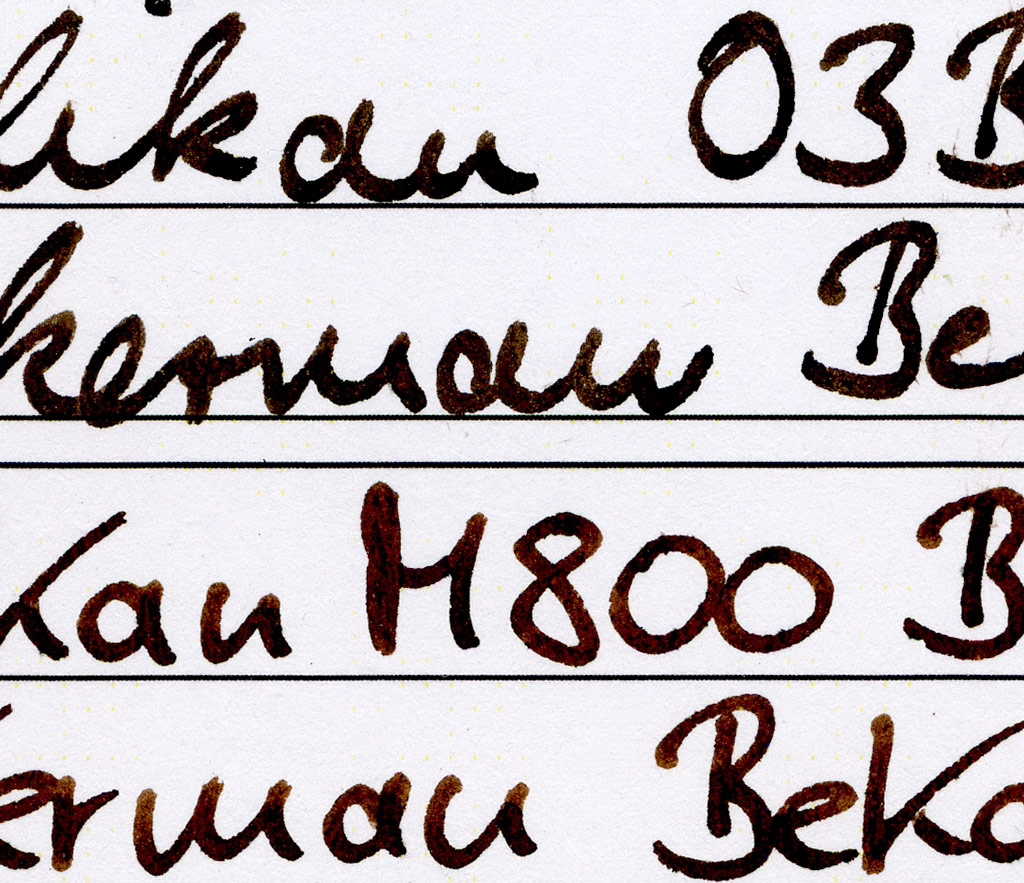 likan 03B
kerman Be
Kan M800 B
erman BeKa